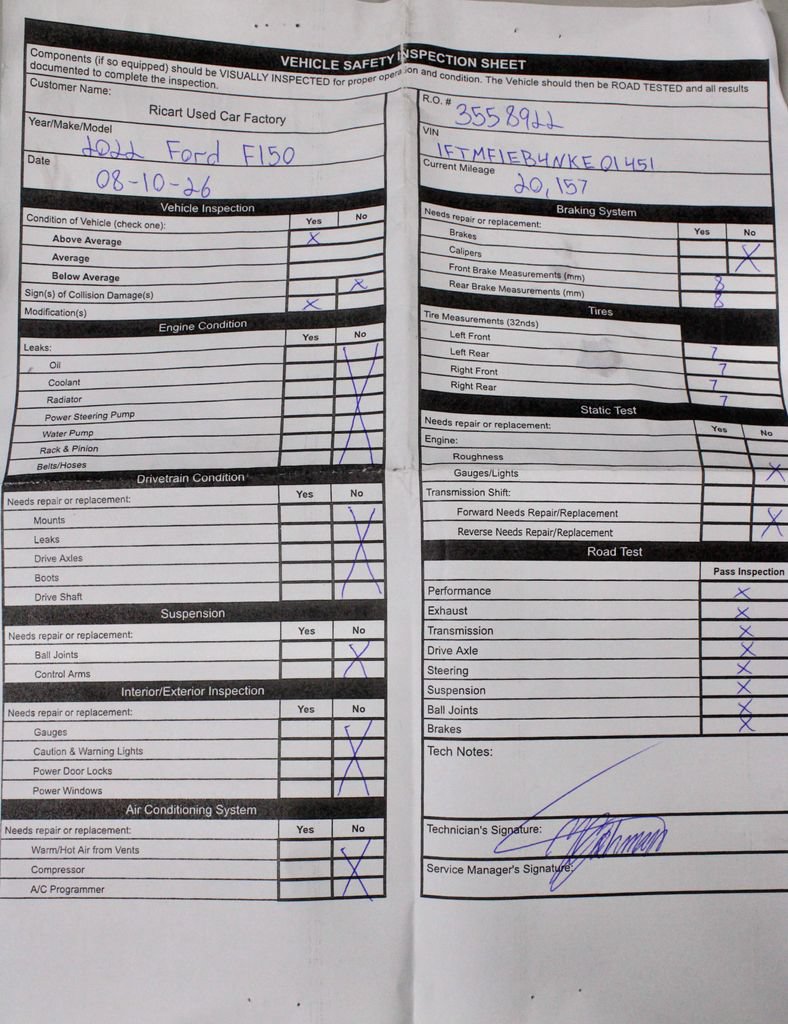 VEHICLE SAFETY INSPECTION SHEET
Components (if so equipped) should be VISUALLY INSPECTED for proper operation and condition. The Vehicle should then be ROAD TESTED and all results
documented to complete the inspection.
Customer Name:
Ricart Used Car Factory
Year/Make/Model
2022 Ford F150
Date
08-10-26
Vehicle Inspection
Condition of Vehicle (check one): Yes No
Above Average X
Average
Below Average
Sign(s) of Collision Damage(s) X
Modification(s) X
Engine Condition
Leaks: Yes No
Oil
Coolant
Radiator
Power Steering Pump
Water Pump
Rack & Pinion
Belts/Hoses
X
Drivetrain Condition
Needs repair or replacement: Yes No
Mounts
Leaks
Drive Axles
Boots
Drive Shaft
X
Suspension
Needs repair or replacement: Yes No
Ball Joints
Control Arms
X
Interior/Exterior Inspection
Needs repair or replacement: Yes No
Gauges
Caution & Warning Lights
Power Door Locks
Power Windows
X
Air Conditioning System
Needs repair or replacement: Yes No
Warm/Hot Air from Vents
Compressor
A/C Programmer
X
R.O. # 3558922
VIN
1FTMF1EB4NKE01451
Current Mileage
20,157
Braking System
Needs repair or replacement: Yes No
Brakes
Calipers
X
Front Brake Measurements (mm) 8
Rear Brake Measurements (mm) 8
Tires
Tire Measurements (32nds)
Left Front 7
Left Rear 7
Right Front 7
Right Rear 7
Static Test
Needs repair or replacement: Yes No
Engine:
Roughness
Gauges/Lights
X
Transmission Shift:
Forward Needs Repair/Replacement
Reverse Needs Repair/Replacement
X
Road Test
Pass Inspection
Performance X
Exhaust X
Transmission X
Drive Axle X
Steering X
Suspension X
Ball Joints X
Brakes X
Tech Notes:
Technician's Signature:
Service Manager's Signature: